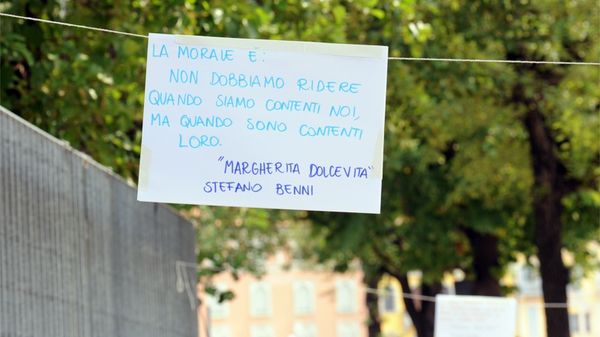 LA MORALE È:
NON DOBBIAMO RIDERE
QUANDO SIAMO CONTENTI NOI,
MA QUANDO SONO CONTENTI
LORO.
"MARGHERITA DOLCEVITA"
STEFANO BENNI